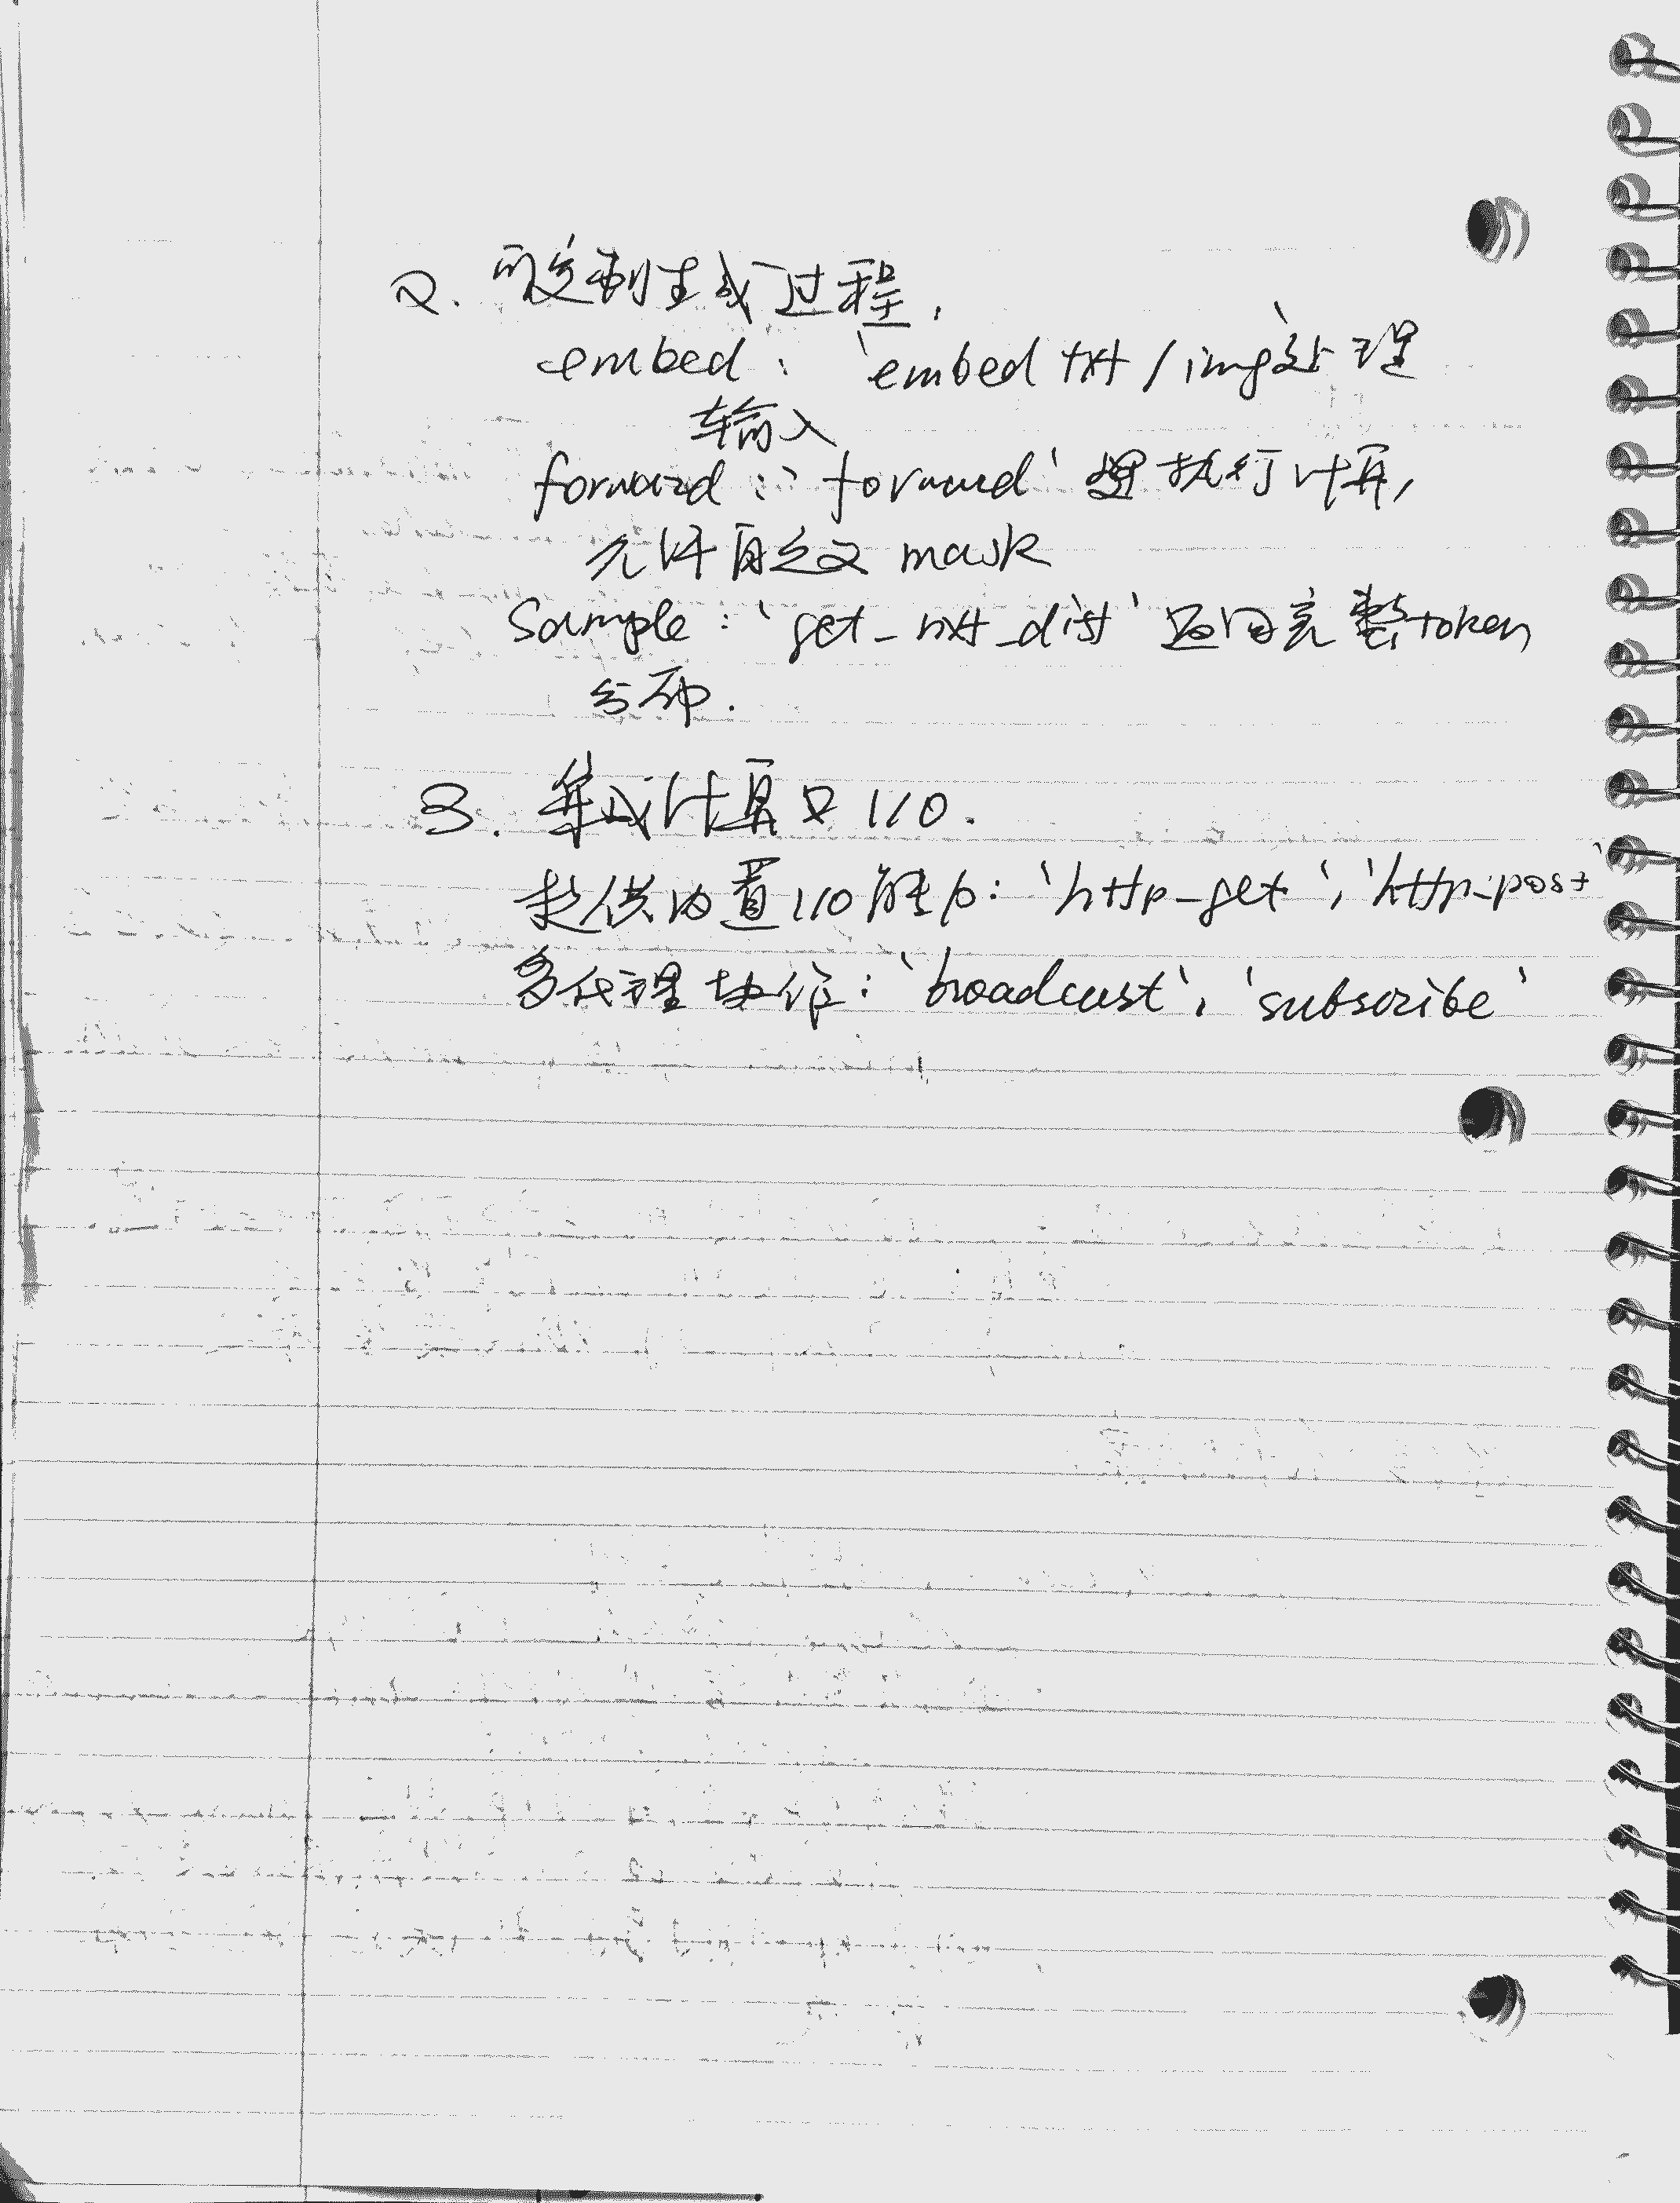 2. 可定制生成过程.
embed: `embed txt/img` 处理
输入
forward: `forward` 执行计算,
允许自定义 mask
Sample: `get_nxt_dist` 返回完整token
分布.
3. 集成计算又 I/O.
提供内置I/O能力: `http_get`, `http_post`
多代理协作: `broadcast`, `subscribe`